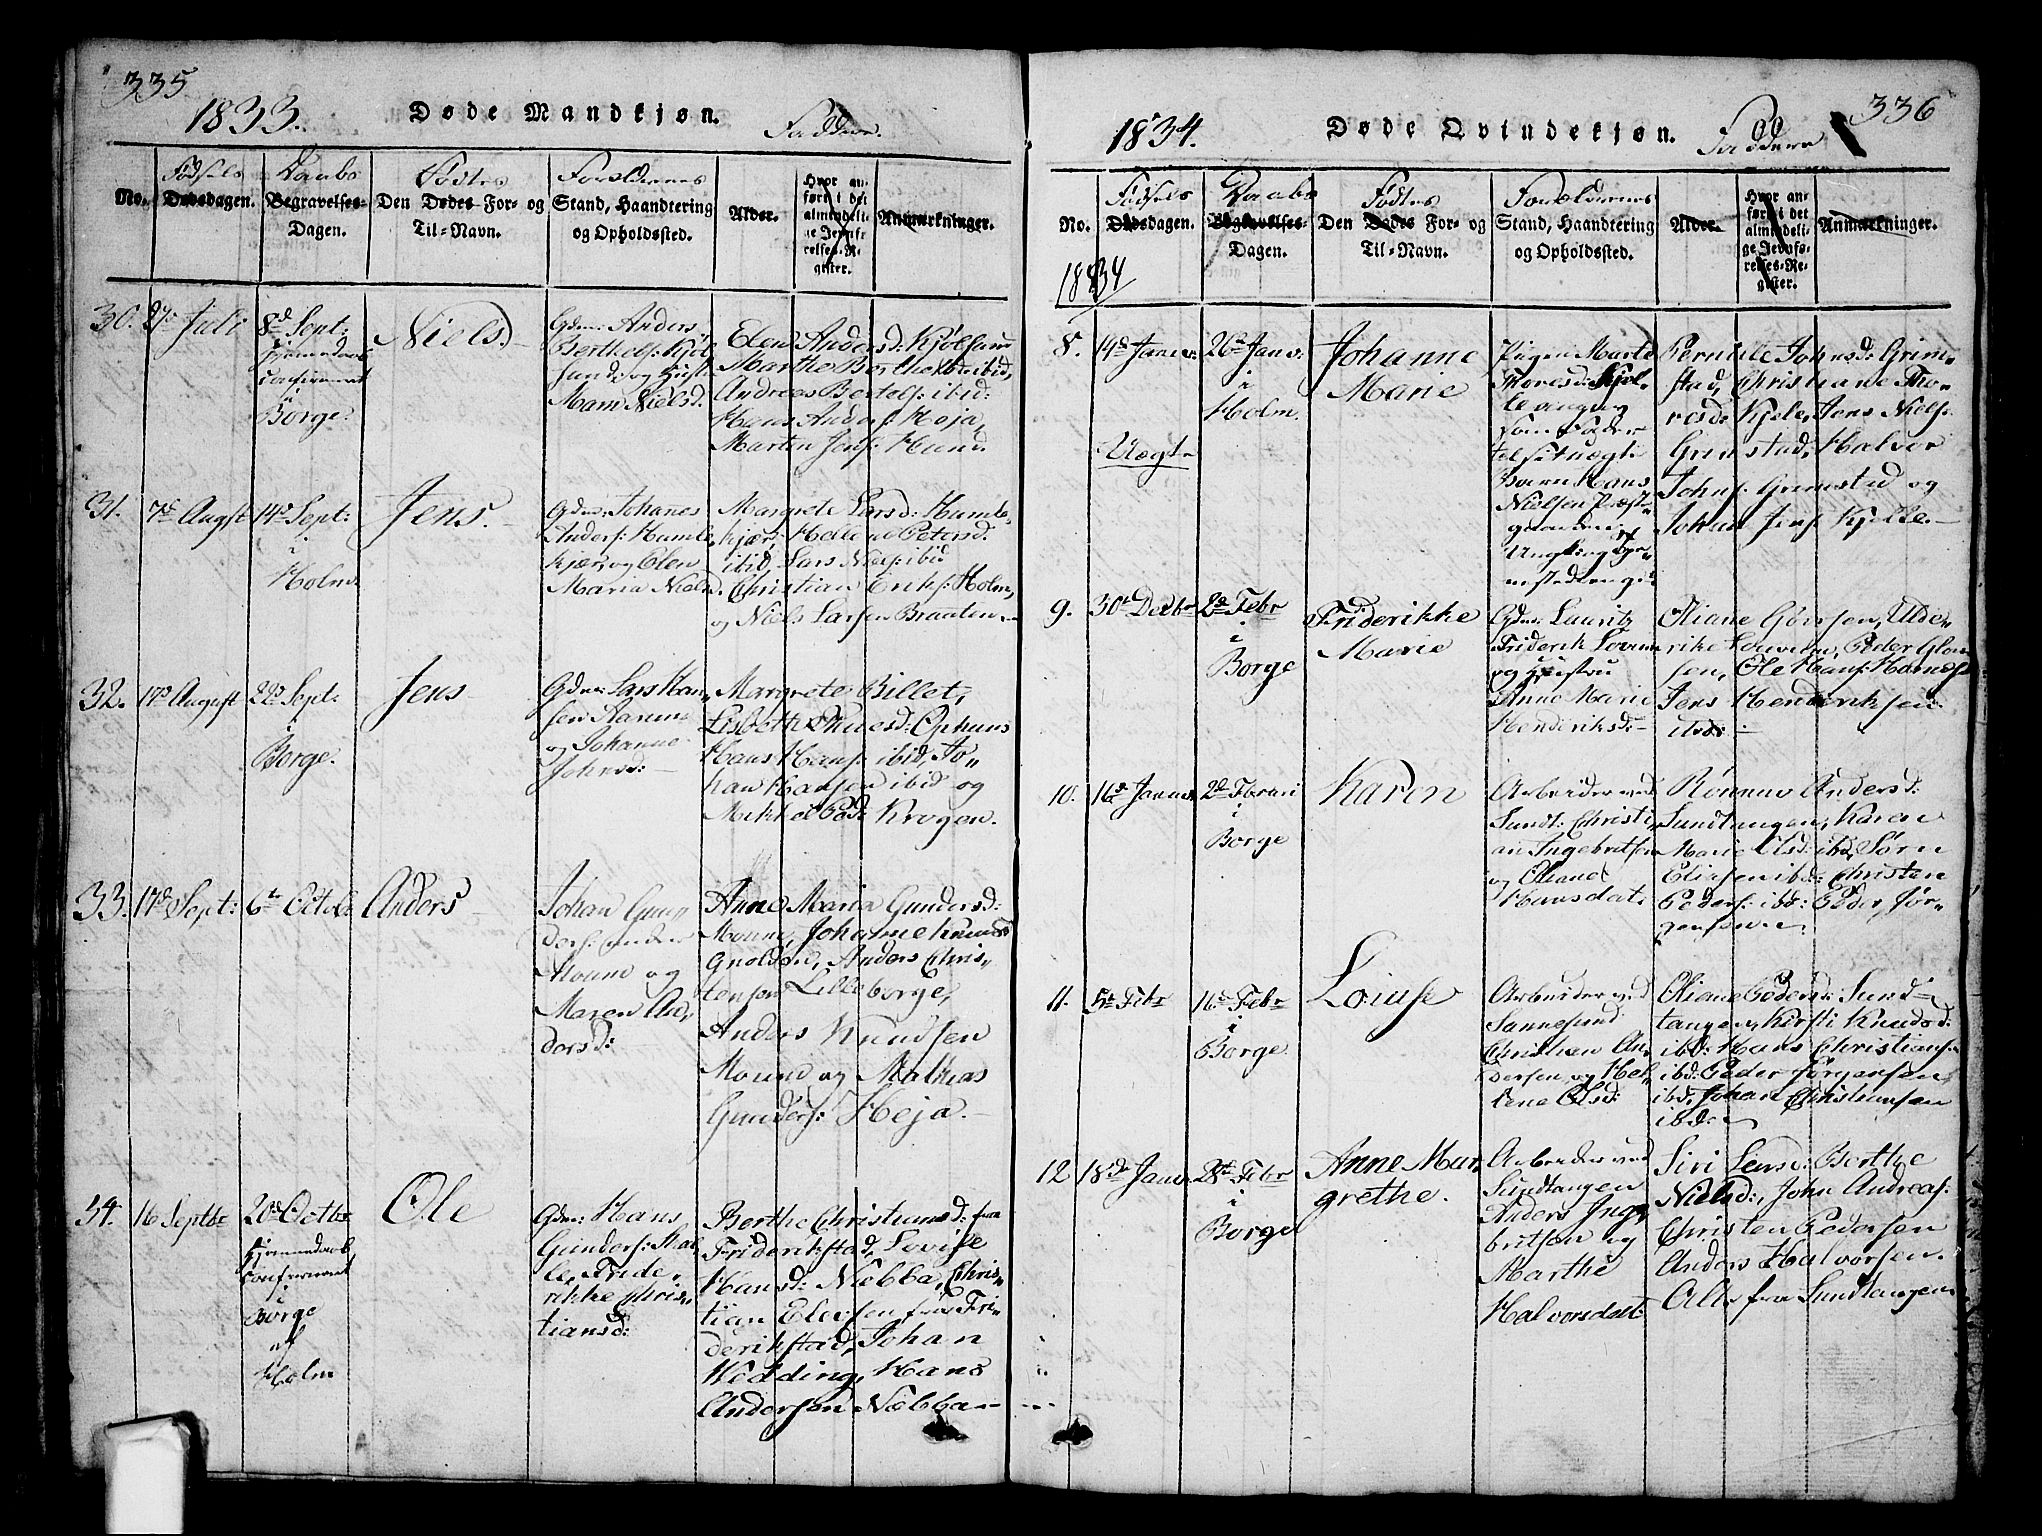 335
1833.
Døde Mandkjøn.
Faddere.
No.
Fødsels
Dødsdagen.
Daabs
Begravelses-
Dagen.
Fødtes
Den Dødes For- og
Til-Navn.
Forældrenes
Stand, Haandtering
og Opholdssted.
Alder.
Hvor an-
ført i det
almindeli-
ge Jevnfø-
relses-Re-
gister.
Anmærkninger.
30.
Juli
8d Sept:
Hjemmedaab
confirmeret
i
Borge.
Niels
Gdm: Anders
Berthels: Kjøl
sund og Hust:
Mari Nielsd.
Elen Andersd: Kjølsund
Marthe Berthelsd ibid,
Andreas Bertels: ibid:
Hans Anders: Heja,
Marten Jens: Hund.
31.
7d Augst
14d Sept:
i
Holm
Jens.
Gdm: Johanes
Anders: Humle
kjær, og Elen
Maria Nielsd.
Margrete Larsd: Humle
kjær, Hellene Petersd:
ibid, Lars Niels: ibid
Christian Eriks: Holm,
og Niels Larsen Braaten.
32.
17d August
29d Sept:
i
Borge.
Jens
Gdm: Lars Han-
sen Aarum
og Johanne
Johnsd:
Margrete Billet,
Lisbeth Thuesd: Ophuus
Hans Hans: ibid, Jo-
han Hansen ibid og
Mikkel Ped: Krogen.
33.
17d Sept:
6te Octob:
Anders
Johan Gun-
ders: under
Moum og
Maren An-
dersd:
Anne Maria Gundersd:
Moum, Johanne Knudsd
Gnolsød, Anders Chris-
tensen Lilleborge,
Anders Knudsen
Moum og Mathias
Gunders: Heja.
34.
16 Septbr
20d Octbr
Hjemmedaab
confirmeret
i
Borge
af
Holm
Ole
Gdm: Hans
Gunders: Kal-
le, Fride-
rikke Chris-
tiansd:
Berthe Christiansd: fra
Friderikstad, Lovise
Hansd: Næbba, Chris-
tian Elersen fra Fri-
derikstad, Johan
Wedding, Hans
Andersen Næbba
336
1834.
Døde Qvindekjøn.
Faddere
No.
Fødsels
Dødsdagen.
Daabs
Begravelses-
Dagen.
Fødtes
Den Dødes For- og
Til-Navn.
Forældrenes
Stand, Haandtering
og Opholdssted.
Alder.
Hvor an-
ført i det
almindeli-
ge Jevnfø-
relses-Re-
gister.
Anmærkninger.
1834
8.
19d Janv:
26d Janv:
i
Holm.
Uægt
Johanne
Marie
Pigen Marte
Thoresd: Kjøl-
som Fader
til sit uægte
Barn Hans
Nielsen
Ungkarl
Pernille Johnsd: Grim-
stad, Christiane Tho-
resd: Kjele, Jens Niels:
Grimstad, Halvor
Johns: Grimstad og
Johan Jens: Kjelle.
9.
30t Decbr
2d Febr
i
Borge
Friderikke
Marie
Gdm: Lauritz
Friderik
og Hustru
Anne Marie
Hendriksd:
Oliane Gørssen, Ulde-
rike Peder
sen, Ole Hans:
Jens Henderiksen
10.
16d Janv:
2d Februari
i
Borge
Karen
Arbeider ved
Sundt: Christi-
an Ingebritsen
og Oliane
Hansdat.
Rønnau Andersd:
Sundtangen, Karen
Marie Olsd: ibd, Sørn
Eliasen ibd: Christen
Peders: ibd: Peder Jør-
gensen
11.
5t Febr
16d Febr
i
Borge
Louise
Arbeider ved
Sannesund
Christian An-
dersen og Hel-
lene Olsd:
Oliane Pedersd: Sund-
tangen, Kirsti Knudsd:
ibd: Hans Christians:
ibd: Peder Jørgensen
ibd, Johan Christiansen
ibd:
12
18d Janv
28d Febr
i
Borge
Anne Mar-
grethe.
Arbeider ved
Sundtangen
Anders Inge-
britsen og
Marthe
Halvorsdat:
Siri Larsd: Berthe
Nielsd:, John Andreas:
Christen Pedersen
Anders Halvorsen.
Alle fra Sundtangen